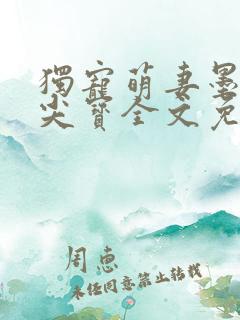 獨寵萌妻墨
尖寶全文免
周惠
未任同意禁止转载